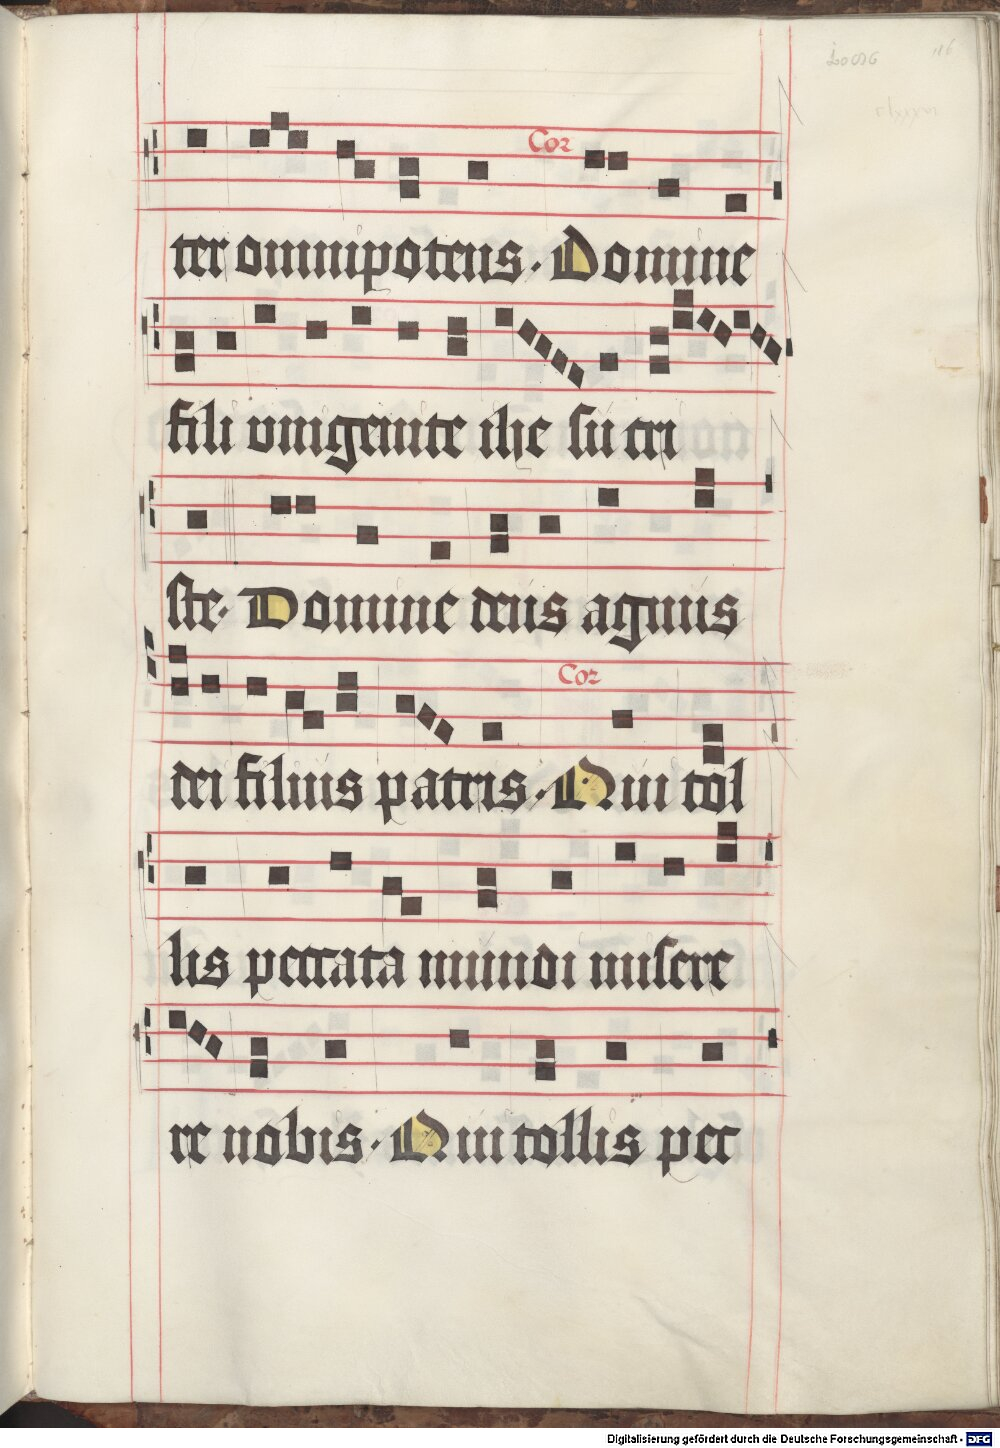 Cor
ter omnipotens. Domine
fili vnigenite ihe su cri
ste. Domine deus agnus
Cor
dei filius patris. Qui tol
lis peccata mundi misere
re nobis. Qui tollis pec
Digitalisierung gefördert durch die Deutsche Forschungsgemeinschaft - DFG